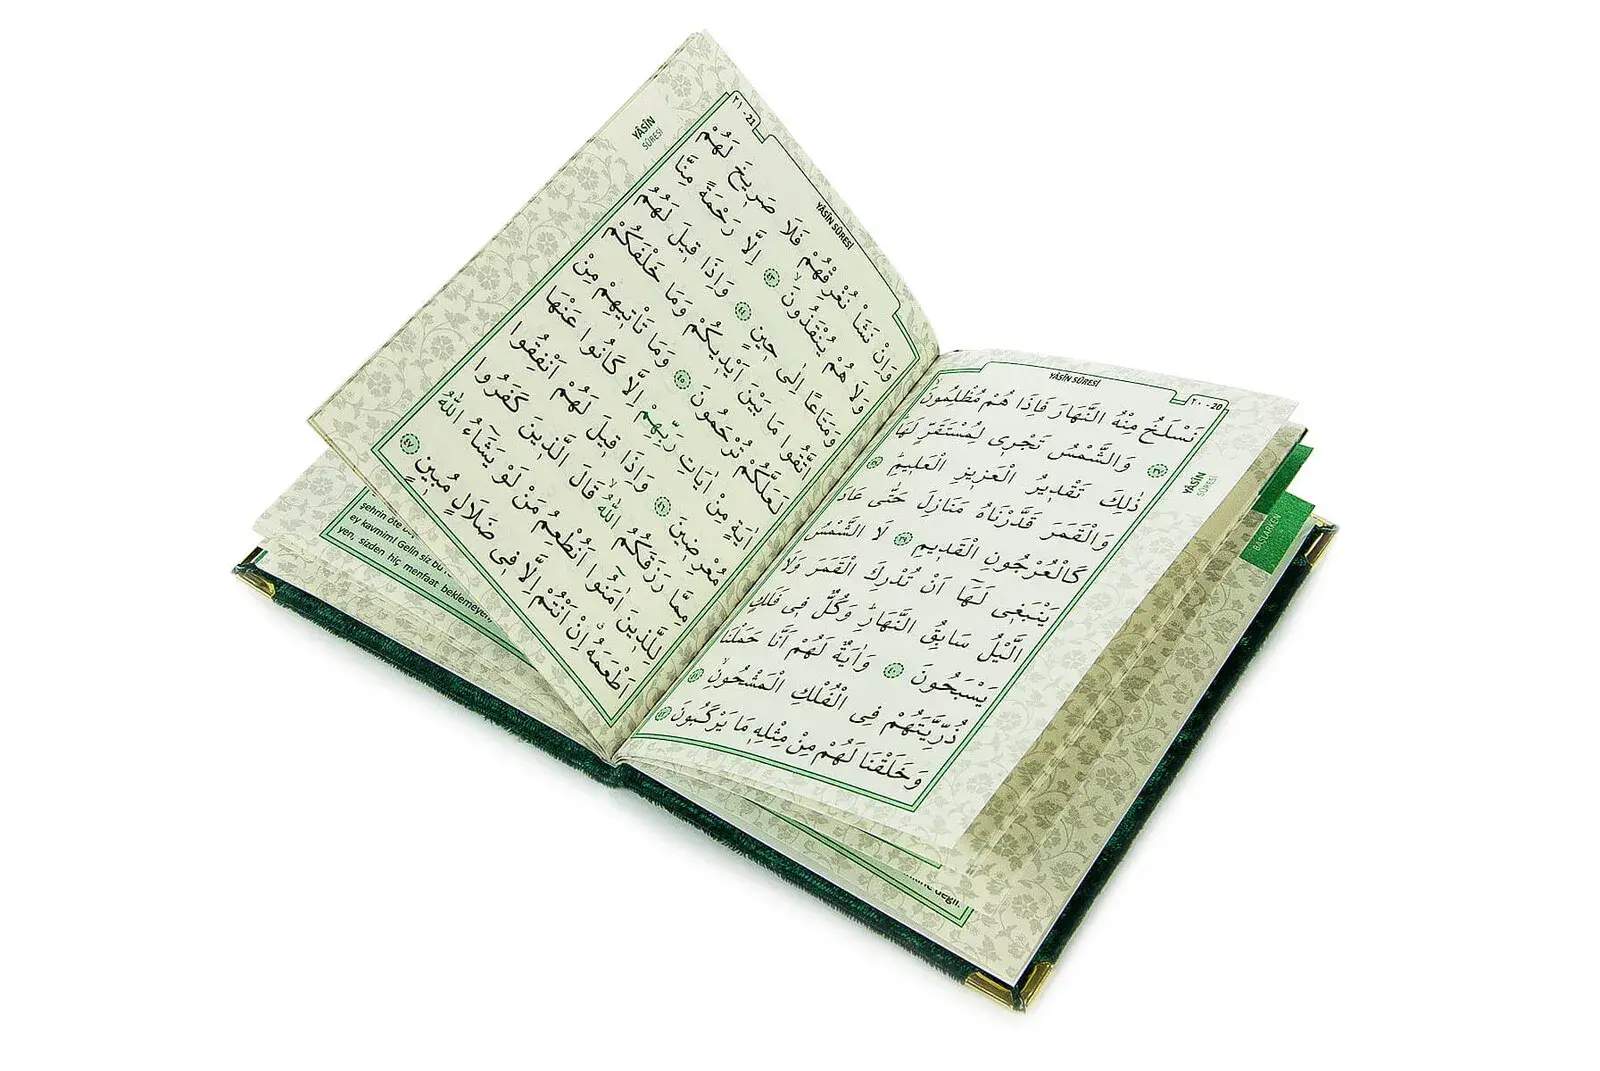 YÂSÎN SÛRESİ
٢٠ - 20
نَسْلَخُ مِنْهُ النَّهَارَ فَاِذَا هُمْ مُظْلِمُونَۙ
﴿٣٧﴾ وَالشَّمْسُ تَجْر۪ي لِمُسْتَقَرٍّ لَهَاۜ
ذٰلِكَ تَقْد۪يرُ الْعَز۪يزِ الْعَل۪يمِۜ ﴿٣٨﴾
وَالْقَمَرَ قَدَّرْنَاهُ مَنَازِلَ حَتّٰى عَادَ
كَالْعُرْجُونِ الْقَد۪يمِ ﴿٣٩﴾ لَا الشَّمْسُ
يَنْبَغ۪ي لَهَٓا اَنْ تُدْرِكَ الْقَمَرَ وَلَا
الَّيْلُ سَابِقُ النَّهَارِۜ وَكُلٌّ ف۪ي فَلَكٍ
يَسْبَحُونَ ﴿٤٠﴾ وَاٰيَةٌ لَهُمْ اَنَّا حَمَلْنَا
ذُرِّيَّتَهُمْ فِي الْفُلْكِ الْمَشْحُونِۙ ﴿٤١﴾
وَخَلَقْنَا لَهُمْ مِنْ مِثْلِه۪ مَا يَرْكَبُونَ ﴿٤٢﴾
YÂSÎN
SÛRESİ
BAŞLARKEN
değil.
YÂSÎN SÛRESİ
٢١ - 21
وَاِنْ نَشَأْ نُغْرِقْهُمْ فَلَا صَر۪يخَ لَهُمْ
وَلَا هُمْ يُنْقَذُونَۙ ﴿٤٣﴾ اِلَّا رَحْمَةً مِنَّا
وَمَتَاعًا اِلٰى ح۪ينٍ ﴿٤٤﴾ وَاِذَا ق۪يلَ لَهُمُ
اتَّقُوا مَا بَيْنَ اَيْد۪يكُمْ وَمَا خَلْفَكُمْ
لَعَلَّكُمْ تُرْحَمُونَ ﴿٤٥﴾ وَمَا تَأْت۪يهِمْ مِنْ
اٰيَةٍ مِنْ اٰيَاتِ رَبِّهِمْ اِلَّا كَانُوا عَنْهَا
مُعْرِض۪ينَ ﴿٤٦﴾ وَاِذَا ق۪يلَ لَهُمْ اَنْفِقُوا
مِمَّا رَزَقَكُمُ اللّٰهُۙ قَالَ الَّذ۪ينَ كَفَرُوا
لِلَّذ۪ينَ اٰمَنُٓوا اَنُطْعِمُ مَنْ لَوْ يَشَٓاءُ اللّٰهُ
اَطْعَمَهُۗ اِنْ اَنْتُمْ اِلَّا ف۪ي ضَلَالٍ مُب۪ينٍ ﴿٤٧﴾
YÂSÎN
SÛRESİ
şehrin öte
ey kavmim! Gelin siz bu
yen, sizden hiç menfaat